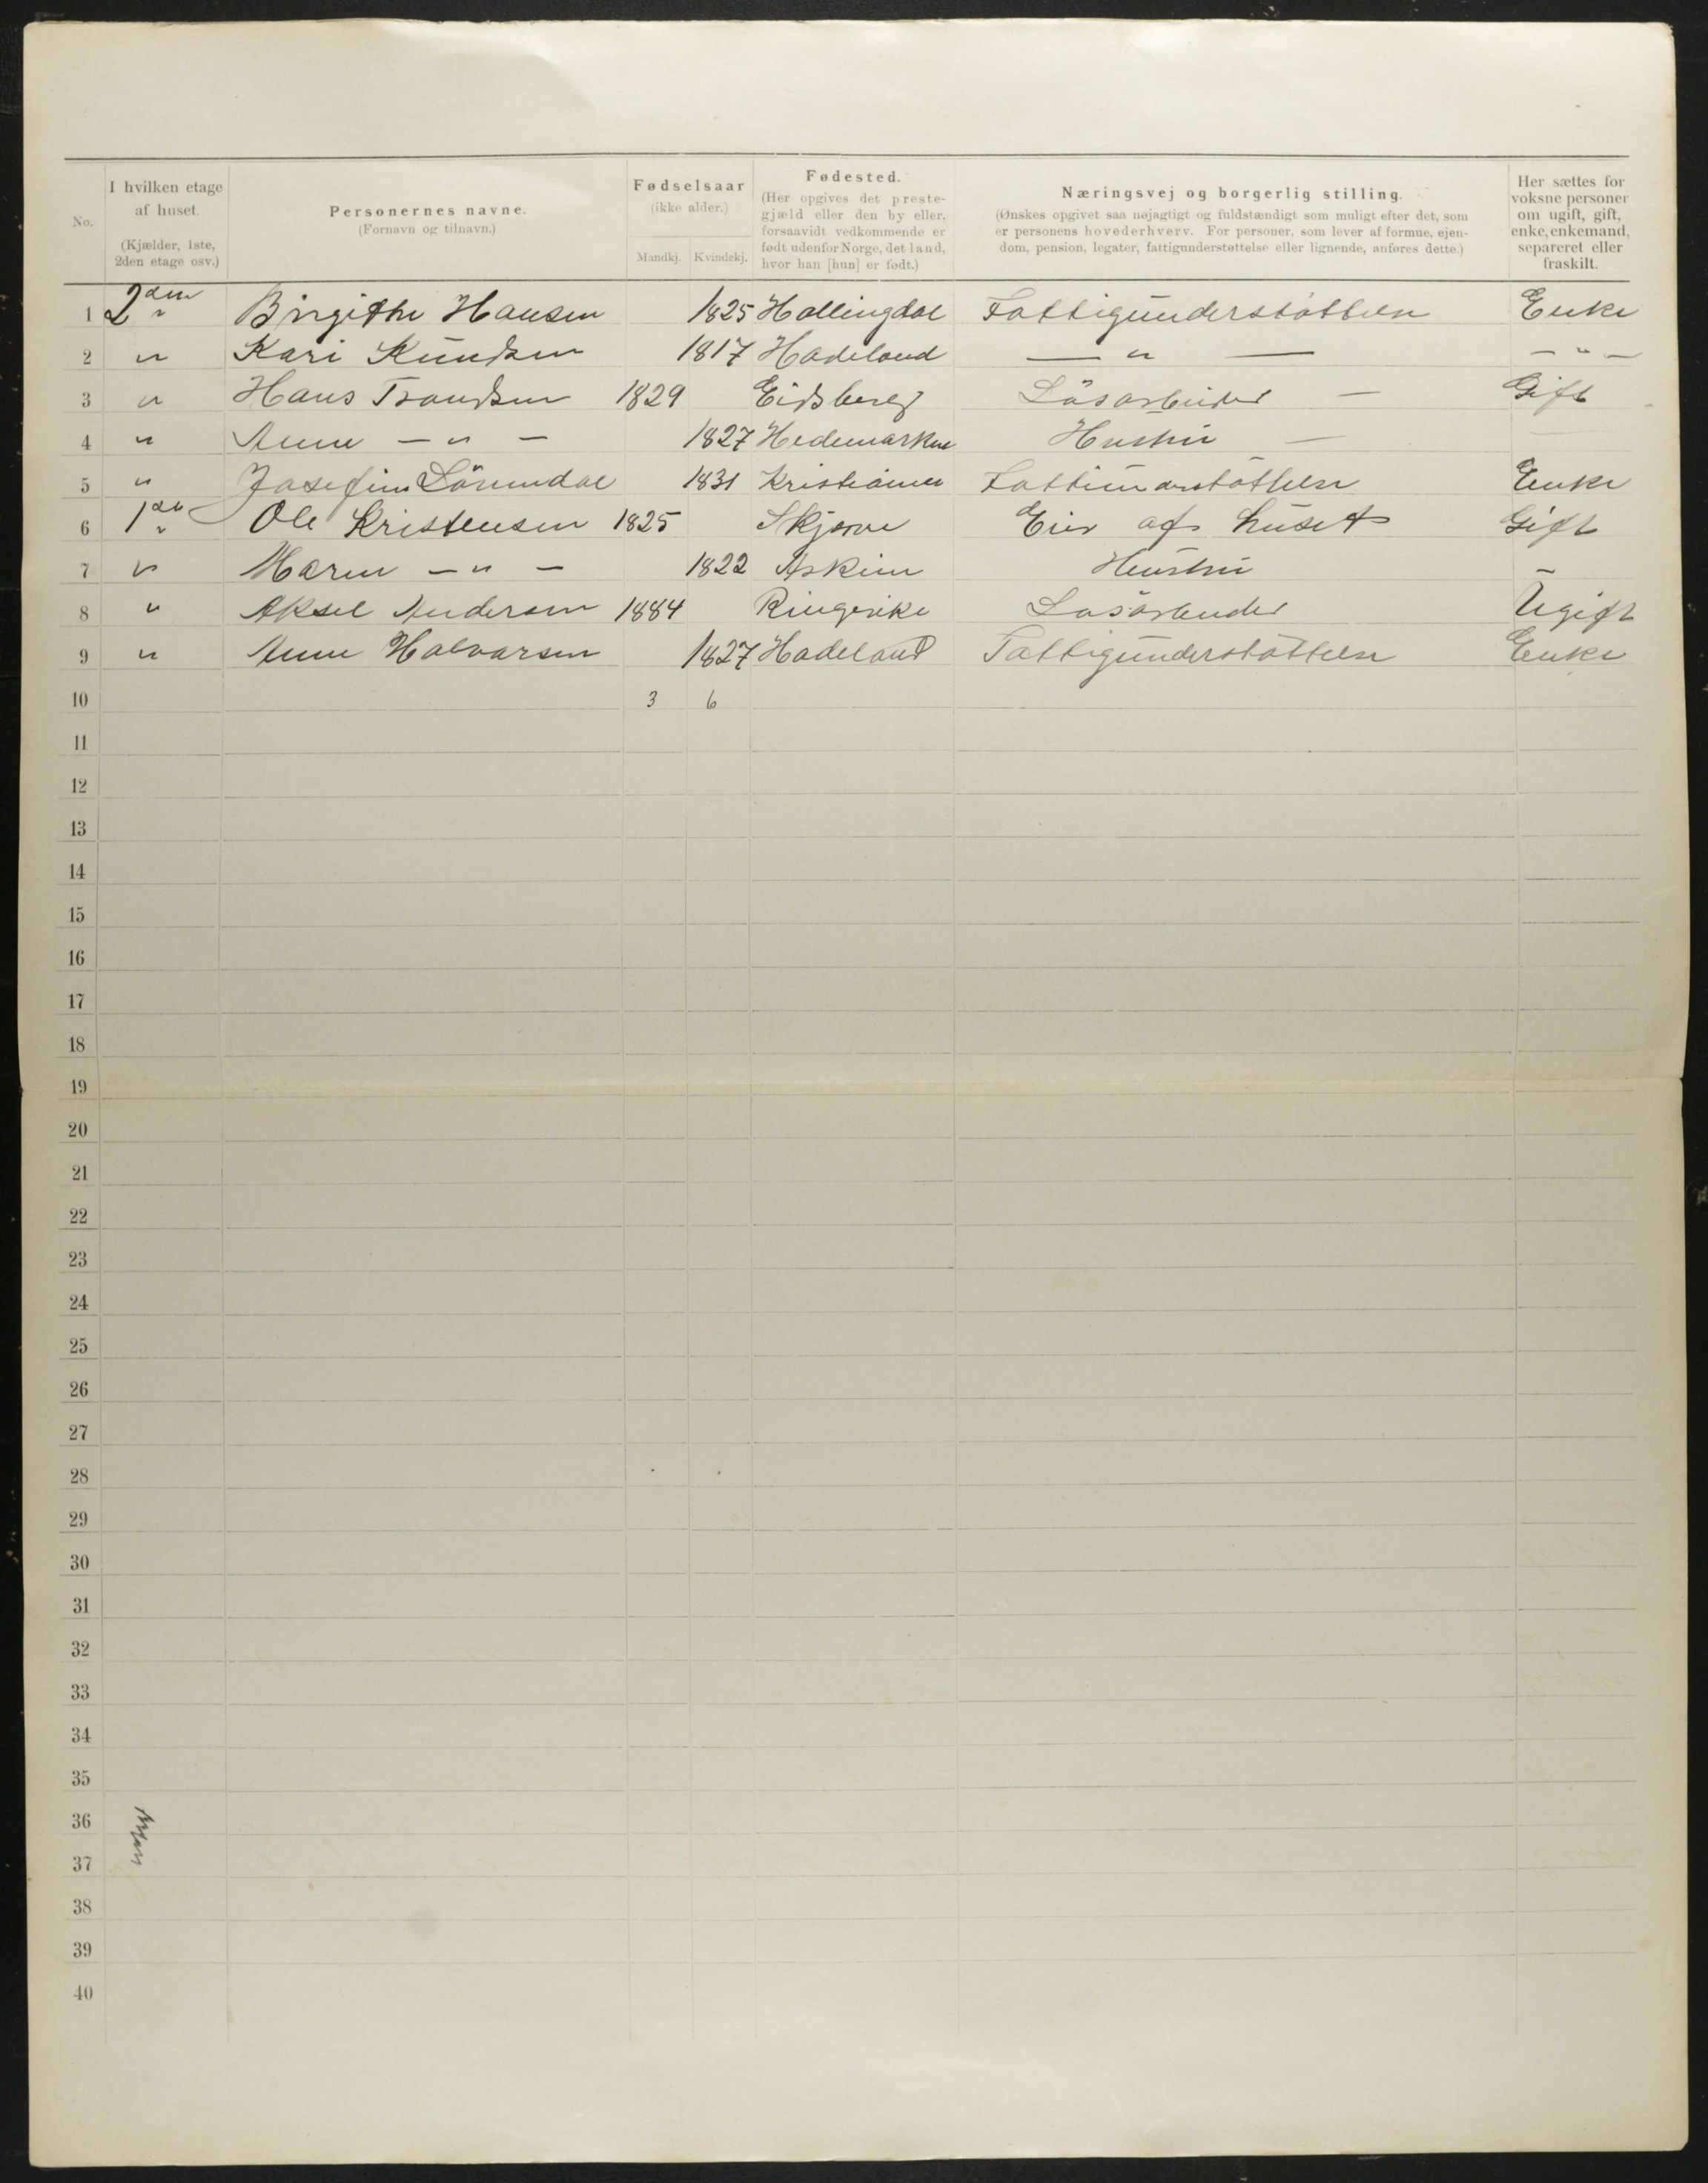 No.
I hvilken etage
af huset.
(Kjælder, 1ste,
2den etage osv.)
Personernes navne.
(Fornavn og tilnavn.)
Fødselsaar
(ikke alder.)
Mandkj. Kvindekj.
Fødested.
(Her opgives det preste-
gjæld eller den by eller,
forsaavidt vedkommende er
født udenfor Norge, det land,
hvor han [hun] er født.)
Næringsvej og borgerlig stilling.
(Ønskes opgivet saa nøjagtigt og fuldstændigt som muligt efter det, som
er personens hovederhverv. For personer, som lever af formue, ejen-
dom, pension, legater, fattigunderstøttelse eller lignende, anføres dette.)
Her sættes for
voksne personer
om ugift, gift,
enke, enkemand,
separeret eller
fraskilt.
1 2den Birgithe Hansen 1825 Hallingdal Fattigunderstøttelse Enke
2 " Kari Knudsen 1817 Hadeland — " — — " —
3 " Hans Trandsen 1829 Eidsberg Løsarbeider — Gift
4 " Anne — " — 1827 Hedemarken Hustru —
5 " Josefine 1831 Kristiania Enke
6 1ste Ole Kristensen 1825 Eier af huset Gift
7 " Maren — " — 1822 Askim Hustru
8 " Aksel Andersen 1884 Ringerike Løsarbeider Ugift
9 " Anne Halvorsen 1827 Hadeland Fattigunderstøttelse Enke
10 3 6
11
12
13
14
15
16
17
18
19
20
21
22
23
24
25
26
27
28
29
30
31
32
33
34
35
36
37
38
39
40